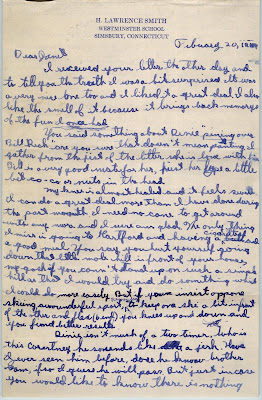 H. LAWRENCE SMITH
WESTMINSTER SCHOOL
SIMSBURY, CONNECTICUT
20, 19
Dear Janet
I received your letter the other day and
to tell you the truth I was a bit surprised. It was
a very nice one too and I liked it a great deal. I also
like the smell of it because it brings back memorys
of the fun I once had.
You said something about Dinie "pining over
Bill Dick" are you sure that doesn't mean
gather from the rest of the letter she is in love with him
Bill is a very good
bit or nuts in the head
My knee is almost healed and it feels swell
I can do a great deal more than I have done during
the past month I need no cane to get around
with any more and I sure am glad. The only thing
I miss is going to Hartford and having a
a good meal. You say about yourself going
down that hill in front of your house
my gosh if you can't stand up on such a simple
hill as that I would try and do something which
I could do more easily. But if your insist upon
skiing one helpful
of the other and flex (bend) you knees up and down and
you find better results.
Dinie isn't much of a two timer. Who is
this he sounds like a jerk. Have
I ever seen him before, does he know brother
Sam, if so I guess he will pass. But just in case
you would like to know there is nothing